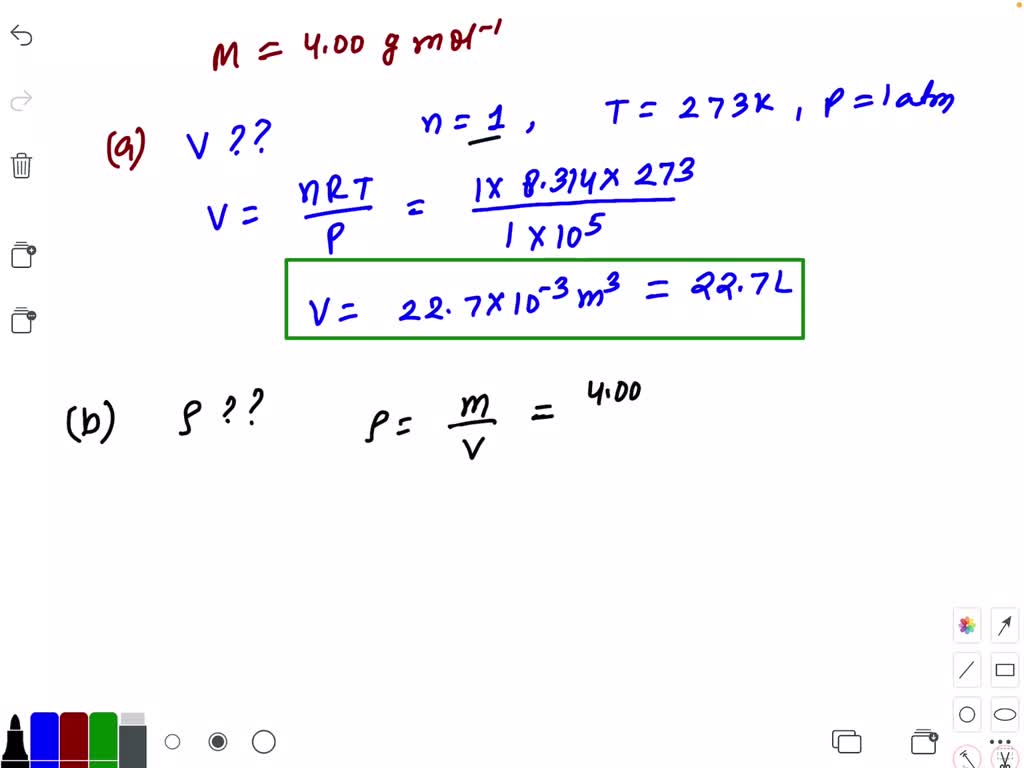 M = 4.00 g mol⁻¹
(a) V ?? n = 1, T = 273K, P = 1 atm
V = nRT/P = 1 x 8.314 x 273 / 1 x 10⁵
V = 22.7 x 10⁻³ m³ = 22.7 L
(b) ρ ?? ρ = m/V = 4.00